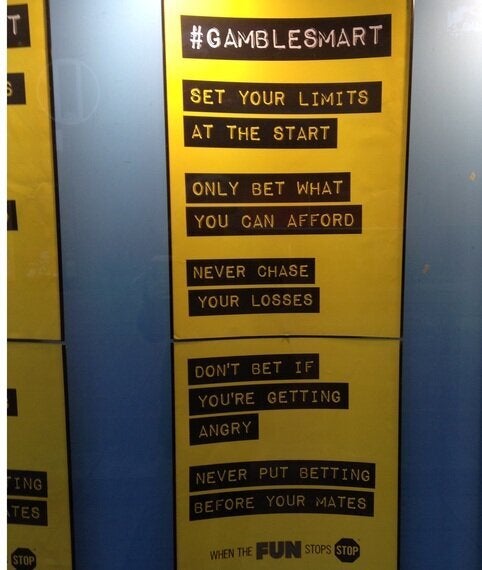 #GAMBLESMART
SET YOUR LIMITS
AT THE START
ONLY BET WHAT
YOU CAN AFFORD
NEVER CHASE
YOUR LOSSES
DON'T BET IF
YOU'RE GETTING
ANGRY
NEVER PUT BETTING
BEFORE YOUR MATES
WHEN THE FUN STOPS STOP
T
S
TING
ATES
STOP